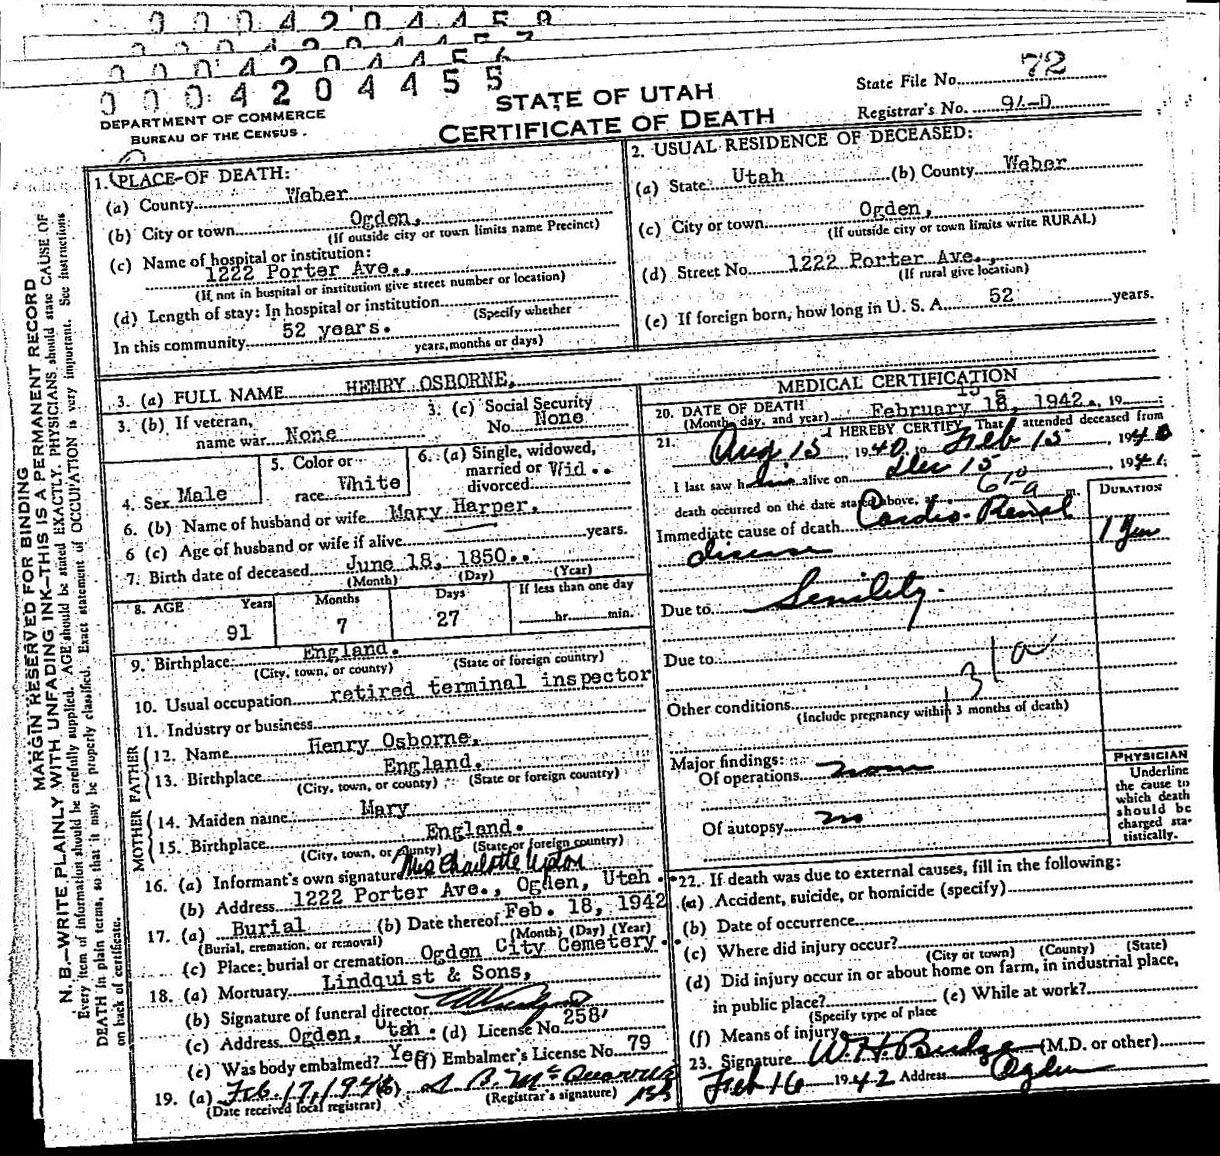 0 0 0 4 2 0 4 4 5 8
0 0 0 4 2 0 4 4 5 7
0 0 0 4 2 0 4 4 5 6
0 0 0 4 2 0 4 4 5 5
DEPARTMENT OF COMMERCE
BUREAU OF THE CENSUS
STATE OF UTAH
CERTIFICATE OF DEATH
State File No. 72
Registrar's No. 94-D
MARGIN RESERVED FOR BINDING
N. B.—WRITE PLAINLY WITH UNFADING INK—THIS IS A PERMANENT RECORD
Every item of information should be carefully supplied. AGE should be stated EXACTLY. PHYSICIANS should state CAUSE OF
DEATH in plain terms, so that it may be properly classified. Exact statement of OCCUPATION is very important. See instructions
on back of certificate.
1. PLACE OF DEATH:
(a) County Weber
(b) City or town Ogden,
(If outside city or town limits name Precinct)
(c) Name of hospital or institution:
1222 Porter Ave.,
(If not in hospital or institution give street number or location)
(d) Length of stay: In hospital or institution
(Specify whether
In this community 52 years.
years, months or days)
2. USUAL RESIDENCE OF DECEASED:
(a) State Utah (b) County Weber
(c) City or town Ogden,
(If outside city or town limits write RURAL)
(d) Street No. 1222 Porter Ave.,
(If rural give location)
(e) If foreign born, how long in U. S. A. 52 years.
3. (a) FULL NAME HENRY OSBORNE,
3. (b) If veteran,
name war None
3. (c) Social Security
No. None
4. Sex Male
5. Color or
race White
6. (a) Single, widowed,
married or Wid..
divorced
6. (b) Name of husband or wife Mary Harper.
6 (c) Age of husband or wife if alive years.
7. Birth date of deceased June 18, 1850..
(Month) (Day) (Year)
8. AGE Years Months Days If less than one day
91 7 27 hr. min.
9. Birthplace England.
(City, town, or county) (State or foreign country)
10. Usual occupation retired terminal inspector
11. Industry or business
FATHER
12. Name Henry Osborne,
13. Birthplace England.
(City, town, or county) (State or foreign country)
MOTHER
14. Maiden name Mary
15. Birthplace England.
(City, town, or county) (State or foreign country)
16. (a) Informant's own signature Mrs Charlotte Upton
(b) Address 1222 Porter Ave., Ogden, Utah.
17. (a) Burial (b) Date thereof Feb. 18, 1942
(Burial, cremation, or removal) (Month) (Day) (Year)
(c) Place: burial or cremation Ogden City Cemetery.
18. (a) Mortuary Lindquist & Sons,
(b) Signature of funeral director
(c) Address Ogden, Utah. (d) License No. 258
(e) Was body embalmed? Yes (f) Embalmer's License No. 79
19. (a) Feb. 17, 1942 (b)
(Date received local registrar) (Registrar's signature)
MEDICAL CERTIFICATION
15
20. DATE OF DEATH
(Month, day, and year) February 18, 1942., 19
21. I HEREBY CERTIFY, That I attended deceased from
Aug. 15, 1940, to Feb 15, 194
I last saw him alive on Dec 15, 1941
death occurred on the date stated above, at m.
Immediate cause of death Cardio-Renal
disease
DURATION
1 Year
Due to Senility.
Due to
131a
Other conditions
(Include pregnancy within 3 months of death)
Major findings:
Of operations none
Of autopsy no
PHYSICIAN
Underline
the cause to
which death
should be
charged sta-
tistically.
22. If death was due to external causes, fill in the following:
(a) Accident, suicide, or homicide (specify)
(b) Date of occurrence
(c) Where did injury occur?
(City or town) (County) (State)
(d) Did injury occur in or about home on farm, in industrial place,
in public place? (e) While at work?
(Specify type of place
(f) Means of injury
23. Signature W. H. Budge (M.D. or other)
Feb 16 1942 Address Ogden